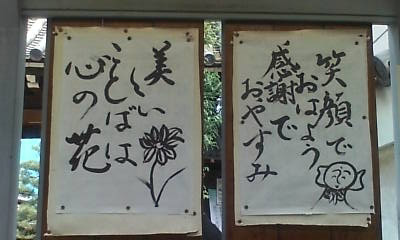 笑顔で
おはよう
感謝で
おやすみ
美しい
ことばは
心の花